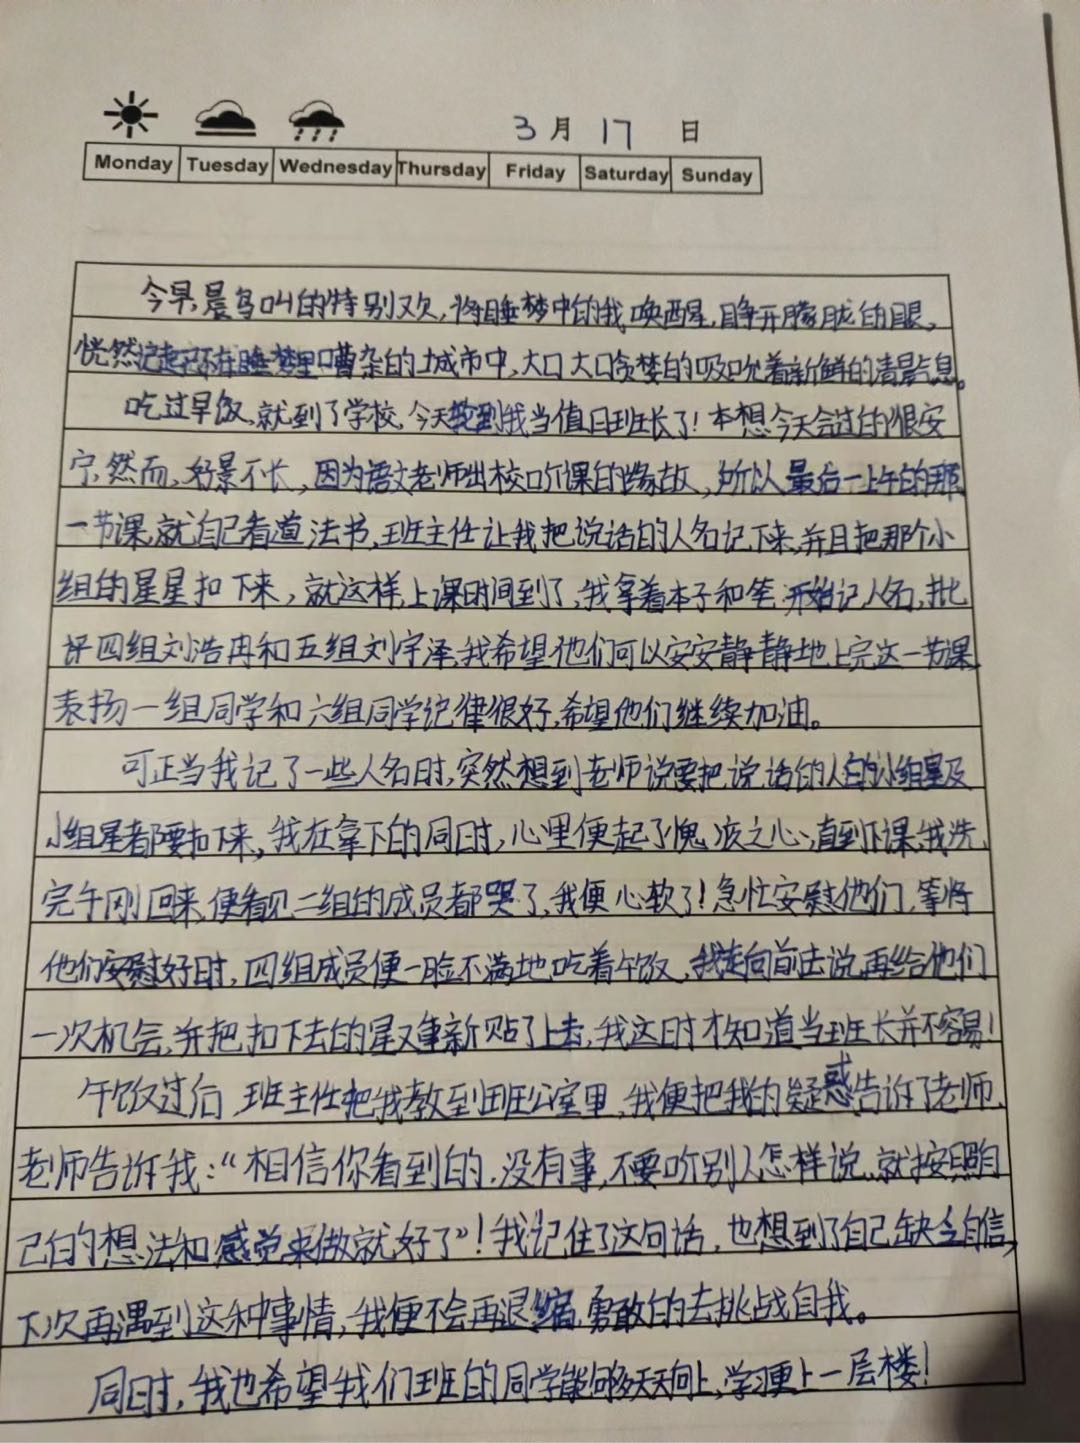 3月17日
Monday Tuesday Wednesday Thursday Friday Saturday Sunday
今早,晨鸟叫的特别欢,将睡梦中的我唤醒,睁开朦胧的眼,
恍然记起己不在睡梦里嘈杂的城市中,大口大口贪婪的吸吮着新鲜的清晨气息。
吃过早饭,就到了学校,今天轮到我当值日班长了!本想今天会过的很安
宁,然而,好景不长,因为语文老师出校听课的缘故,所以最后一上午的那
一节课,就自己看道法书,班主任让我把说话的人名记下来,并且把那个小
组的星星扣下来,就这样,上课时间到了,我拿着本子和笔开始记人名,批
评四组刘浩冉和五组刘宇泽,我希望他们可以安安静静地上完这一节课
表扬一组同学和六组同学纪律很好,希望他们继续加油。
可正当我记了一些人名时,突然想到老师说要把说话的人的小组星及
小组星都要扣下来,我在拿下的同时,心里便起了愧疚之心,直到下课,我洗
完午刚回来,便看见二组的成员都哭了,我便心软了!急忙安慰他们,等将
他们安慰好时,四组成员便一脸不满地吃着午饭,我走向前去说,再给他们
一次机会,并把扣下去的星又重新贴了上去,我这时才知道当班长并不容易!
午饭过后,班主任把我教到班公室里,我便把我的疑惑告诉了老师,
老师告诉我:“相信你看到的,没有事,不要听别人怎样说,就按照自
己的想法和感觉来做就好了”!我记住了这句话,也想到了自己缺乏自信,
下次再遇到这种事情,我便不会再退缩,勇敢的去挑战自我。
同时,我也希望我们班的同学能够天天向上,学习更上一层楼!